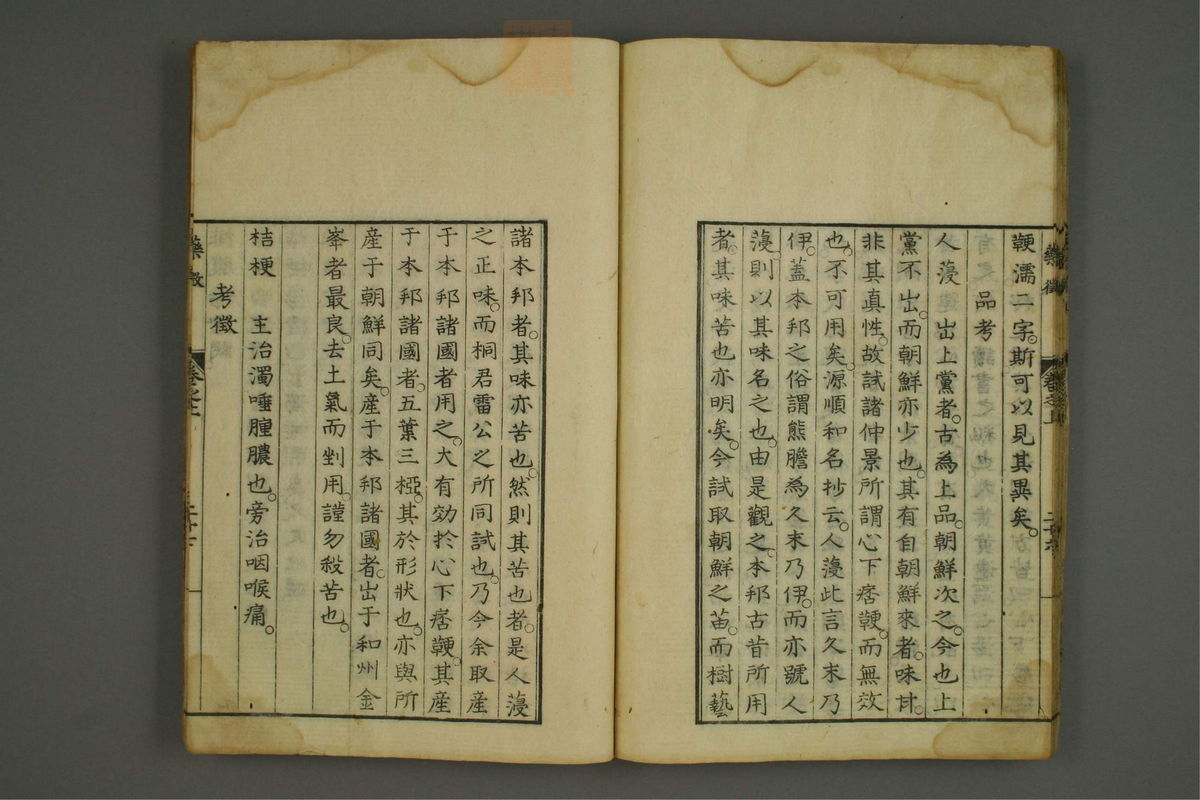 藥徵
卷之上
鞕濡二字。斯可以見其異矣。
品考
人薓 出上黨者。古為上品。朝鮮次之。今也上
黨不出。而朝鮮亦少也。其有自朝鮮來者。味甘。
非其真性。故試諸仲景所謂心下痞鞕。而無效
也。不可用矣。源順和名抄云。人薓此言久末乃
伊。蓋本邦之俗謂熊膽為久末乃伊。而亦號人
薓。則以其味名之也。由是觀之。本邦古昔所用
者。其味苦也亦明矣。今試取朝鮮之苗。而樹藝
諸本邦者。其味亦苦也。然則其苦也者。是人薓
之正味。而桐君雷公之所同試也。乃今余取產
于本邦諸國者用之。大有効於心下痞鞕。其產
于本邦諸國者。五葉三椏。其於形狀也。亦與所
產于朝鮮同矣。產于本邦諸國者。出于和州金
峯者最良。去土氣而剉用。謹勿殺苦也。
桔梗 主治濁唾腫膿也。旁治咽喉痛。
考徵
藥徵
卷之上